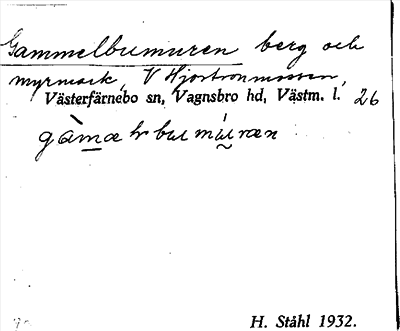 Gammelbumuren berg och
myrmark, V Hjortronmossen,
Västerfärnebo sn, Vagnsbro hd, Västm. l. 26
gàmælrbumúræn
H. Ståhl 1932.